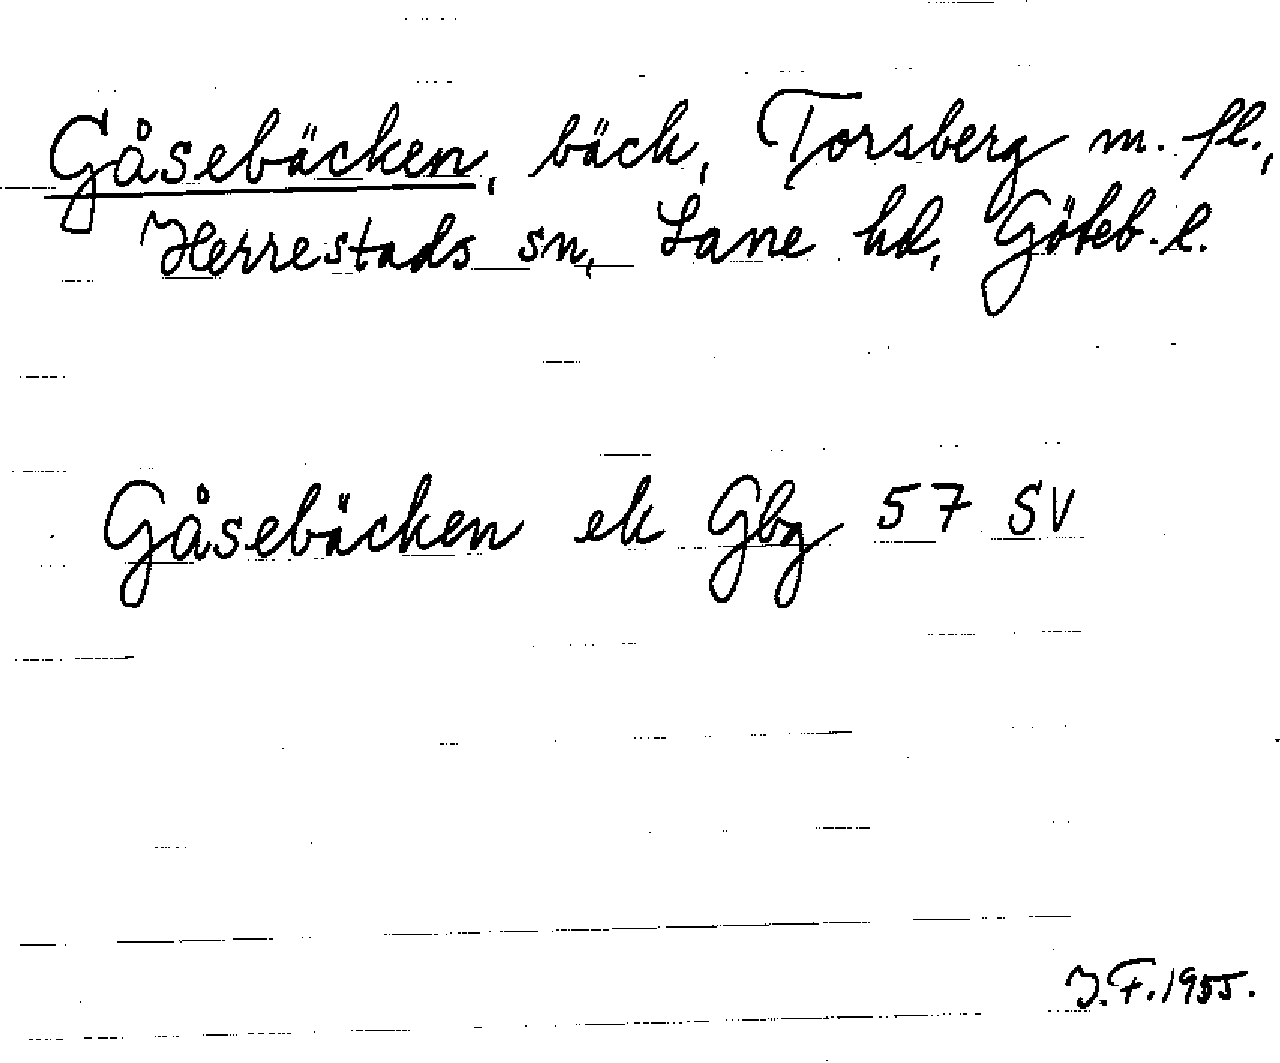 Gåsebäcken, bäck, Torsberg m. fl.,
Herrestads sn, Lane hd, Göteb. l.
Gåsebäcken ek Gbg 57 SV
J. F. 1955.